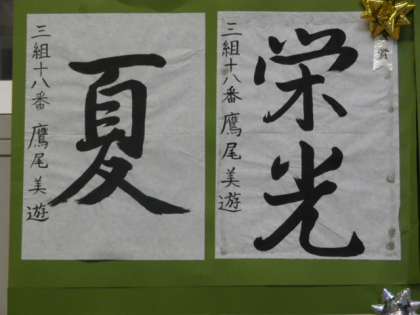 栄光
三組十八番 鷹尾美遊
賞
夏
三組十八番 鷹尾美遊